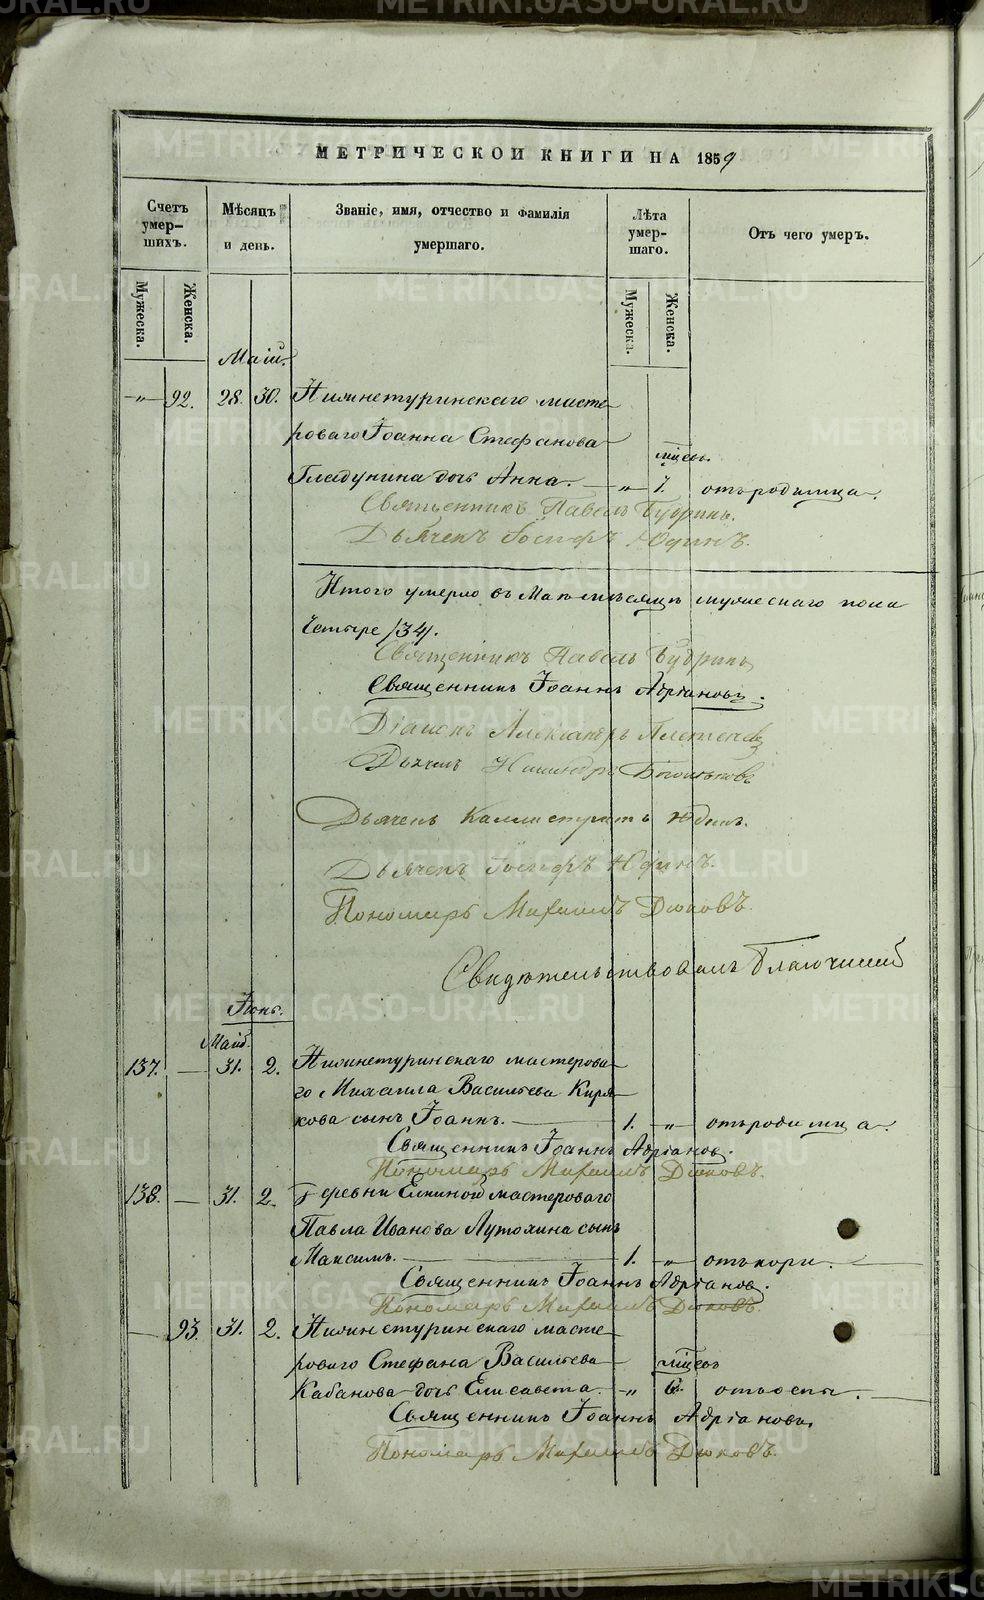 МЕТРИЧЕСКОЙ КНИГИ НА 1859
Счетъ умер-шихъ.
Мѣсяцъ и день.
Званіе, имя, отчество и фамилія умершаго.
Лѣта умер-шаго.
Отъ чего умеръ.
Мужеска.
Женска.
Мужеска.
Женска.
Маій.
-"- 92. 28. 30. Нижнетуринскаго масте-
роваго Іоанна Стефанова
мѣсяц.
Гладунина дочь Анна. -"- 7. отъ родимца.
Священникъ Павелъ Бубринъ.
Дьячекъ Іосифъ Юдинъ.
Итого умерло въ Маѣ мѣсяцѣ мужескаго пола
четыре /34/.
Священникъ Павелъ Бубринъ
Священникъ Іоаннъ Адріановъ.
Діаконъ Александръ Плетенев
Дьячекъ
Дьячекъ Каллистратъ Юдинъ.
Дьячекъ Іосифъ Юдинъ.
Пономарь Михаилъ Дюковъ.
Свидѣтельствовалъ Благочинный
Іюнь.
Маій.
137. — 31. 2. Нижнетуринскаго мастерова-
го Михаила Васильева Киря-
кова сынъ Іоаннъ. — 1. -"- отъ родимца.
Священникъ Іоаннъ Адріанов.
Пономарь Михаилъ Дюковъ.
138. — 31. 2. Деревни Елкиной мастероваго
Павла Иванова Лутохина сынъ
Максимъ. — 1. -"- отъ кори.
Священникъ Іоаннъ Адріанов.
Пономарь Михаилъ Дюковъ.
— 93. 31. 2. Нижнетуринскаго масте-
роваго Стефана Васильева мѣсец
Кабанова дочь Елисавета. -"- 6. отъ оспы.
Священникъ Іоаннъ Адріановъ.
Пономарь Михаилъ Дюковъ.
METRIKI.GASO-URAL.RU